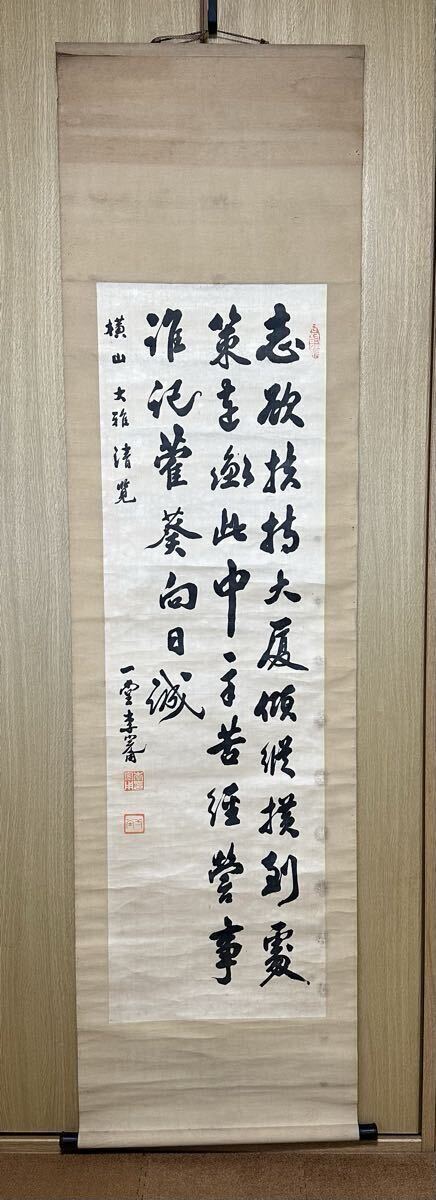 志欲扶持大厦傾縱横到處
策連衡此中辛苦經營事
誰記藿葵向日誠
横山大雅清覧
一堂李完用